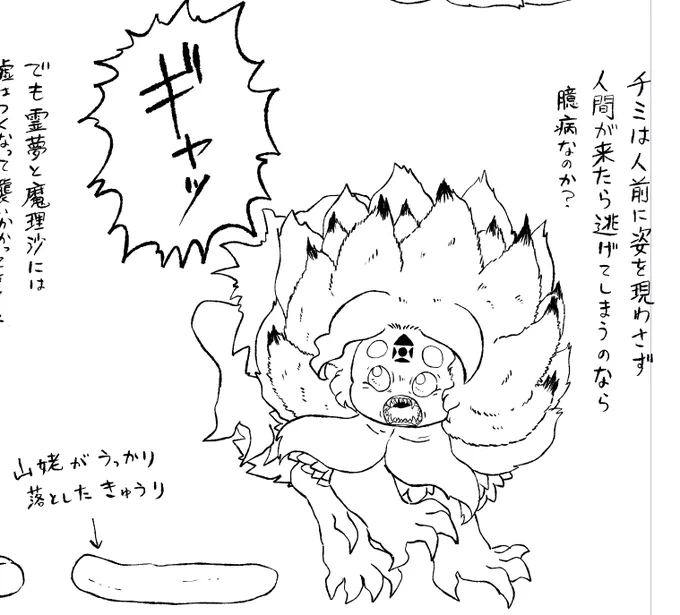 チミは人前に姿を現わさず
人間が来たら逃げてしまうのなら
臆病なのか?
ギャッ
でも霊夢と魔理沙には
嘘はつくなって襲いかかって
山姥がうっかり
落としたきゅうり